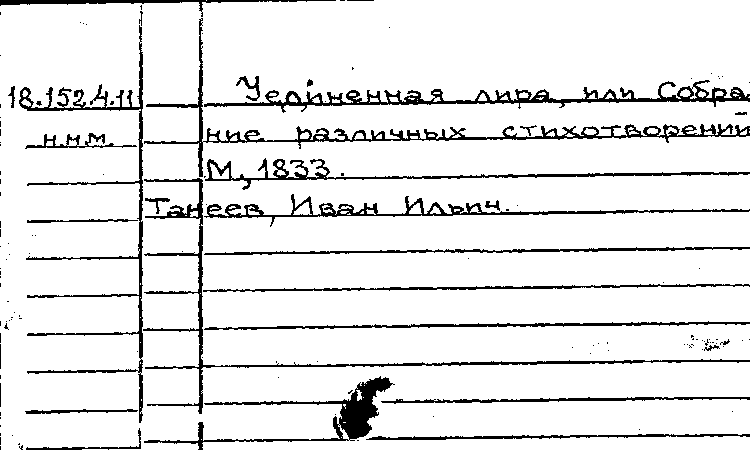 18.152.4.11 Уединенная лира, или Собра
н.н.м. ние различных стихотворений
М., 1833.
Танеев, Иван Ильич.